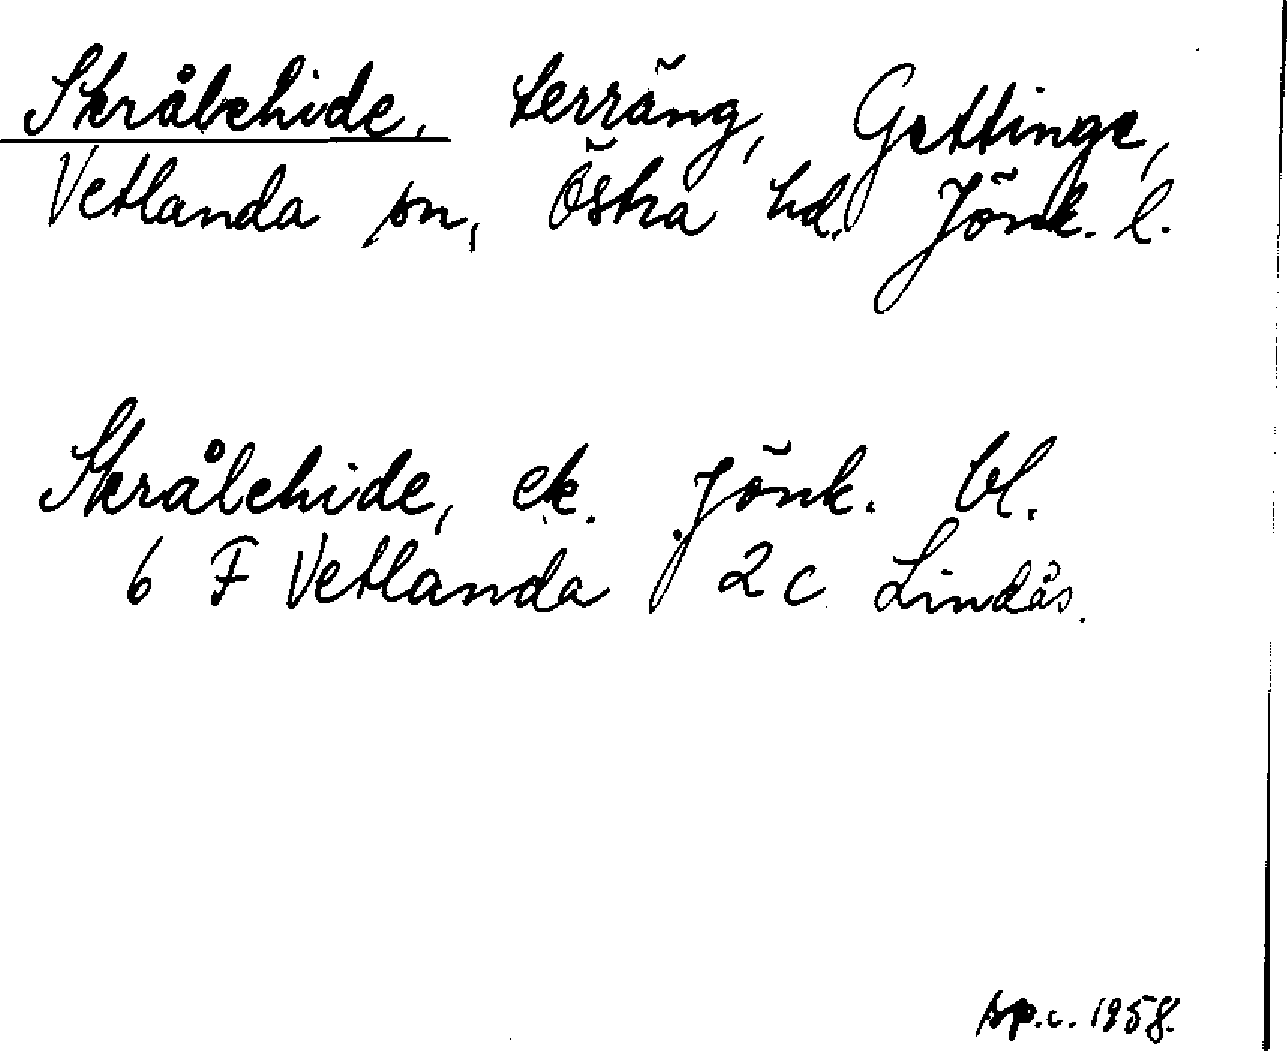 Skråbehide, terräng, Gettinge,
Vetlanda sn, Östra hd. Jönk. l.
Skrålehide, ek. Jönk. bl.
6 F Vetlanda 2c Lindås.
sp.c. 1958.